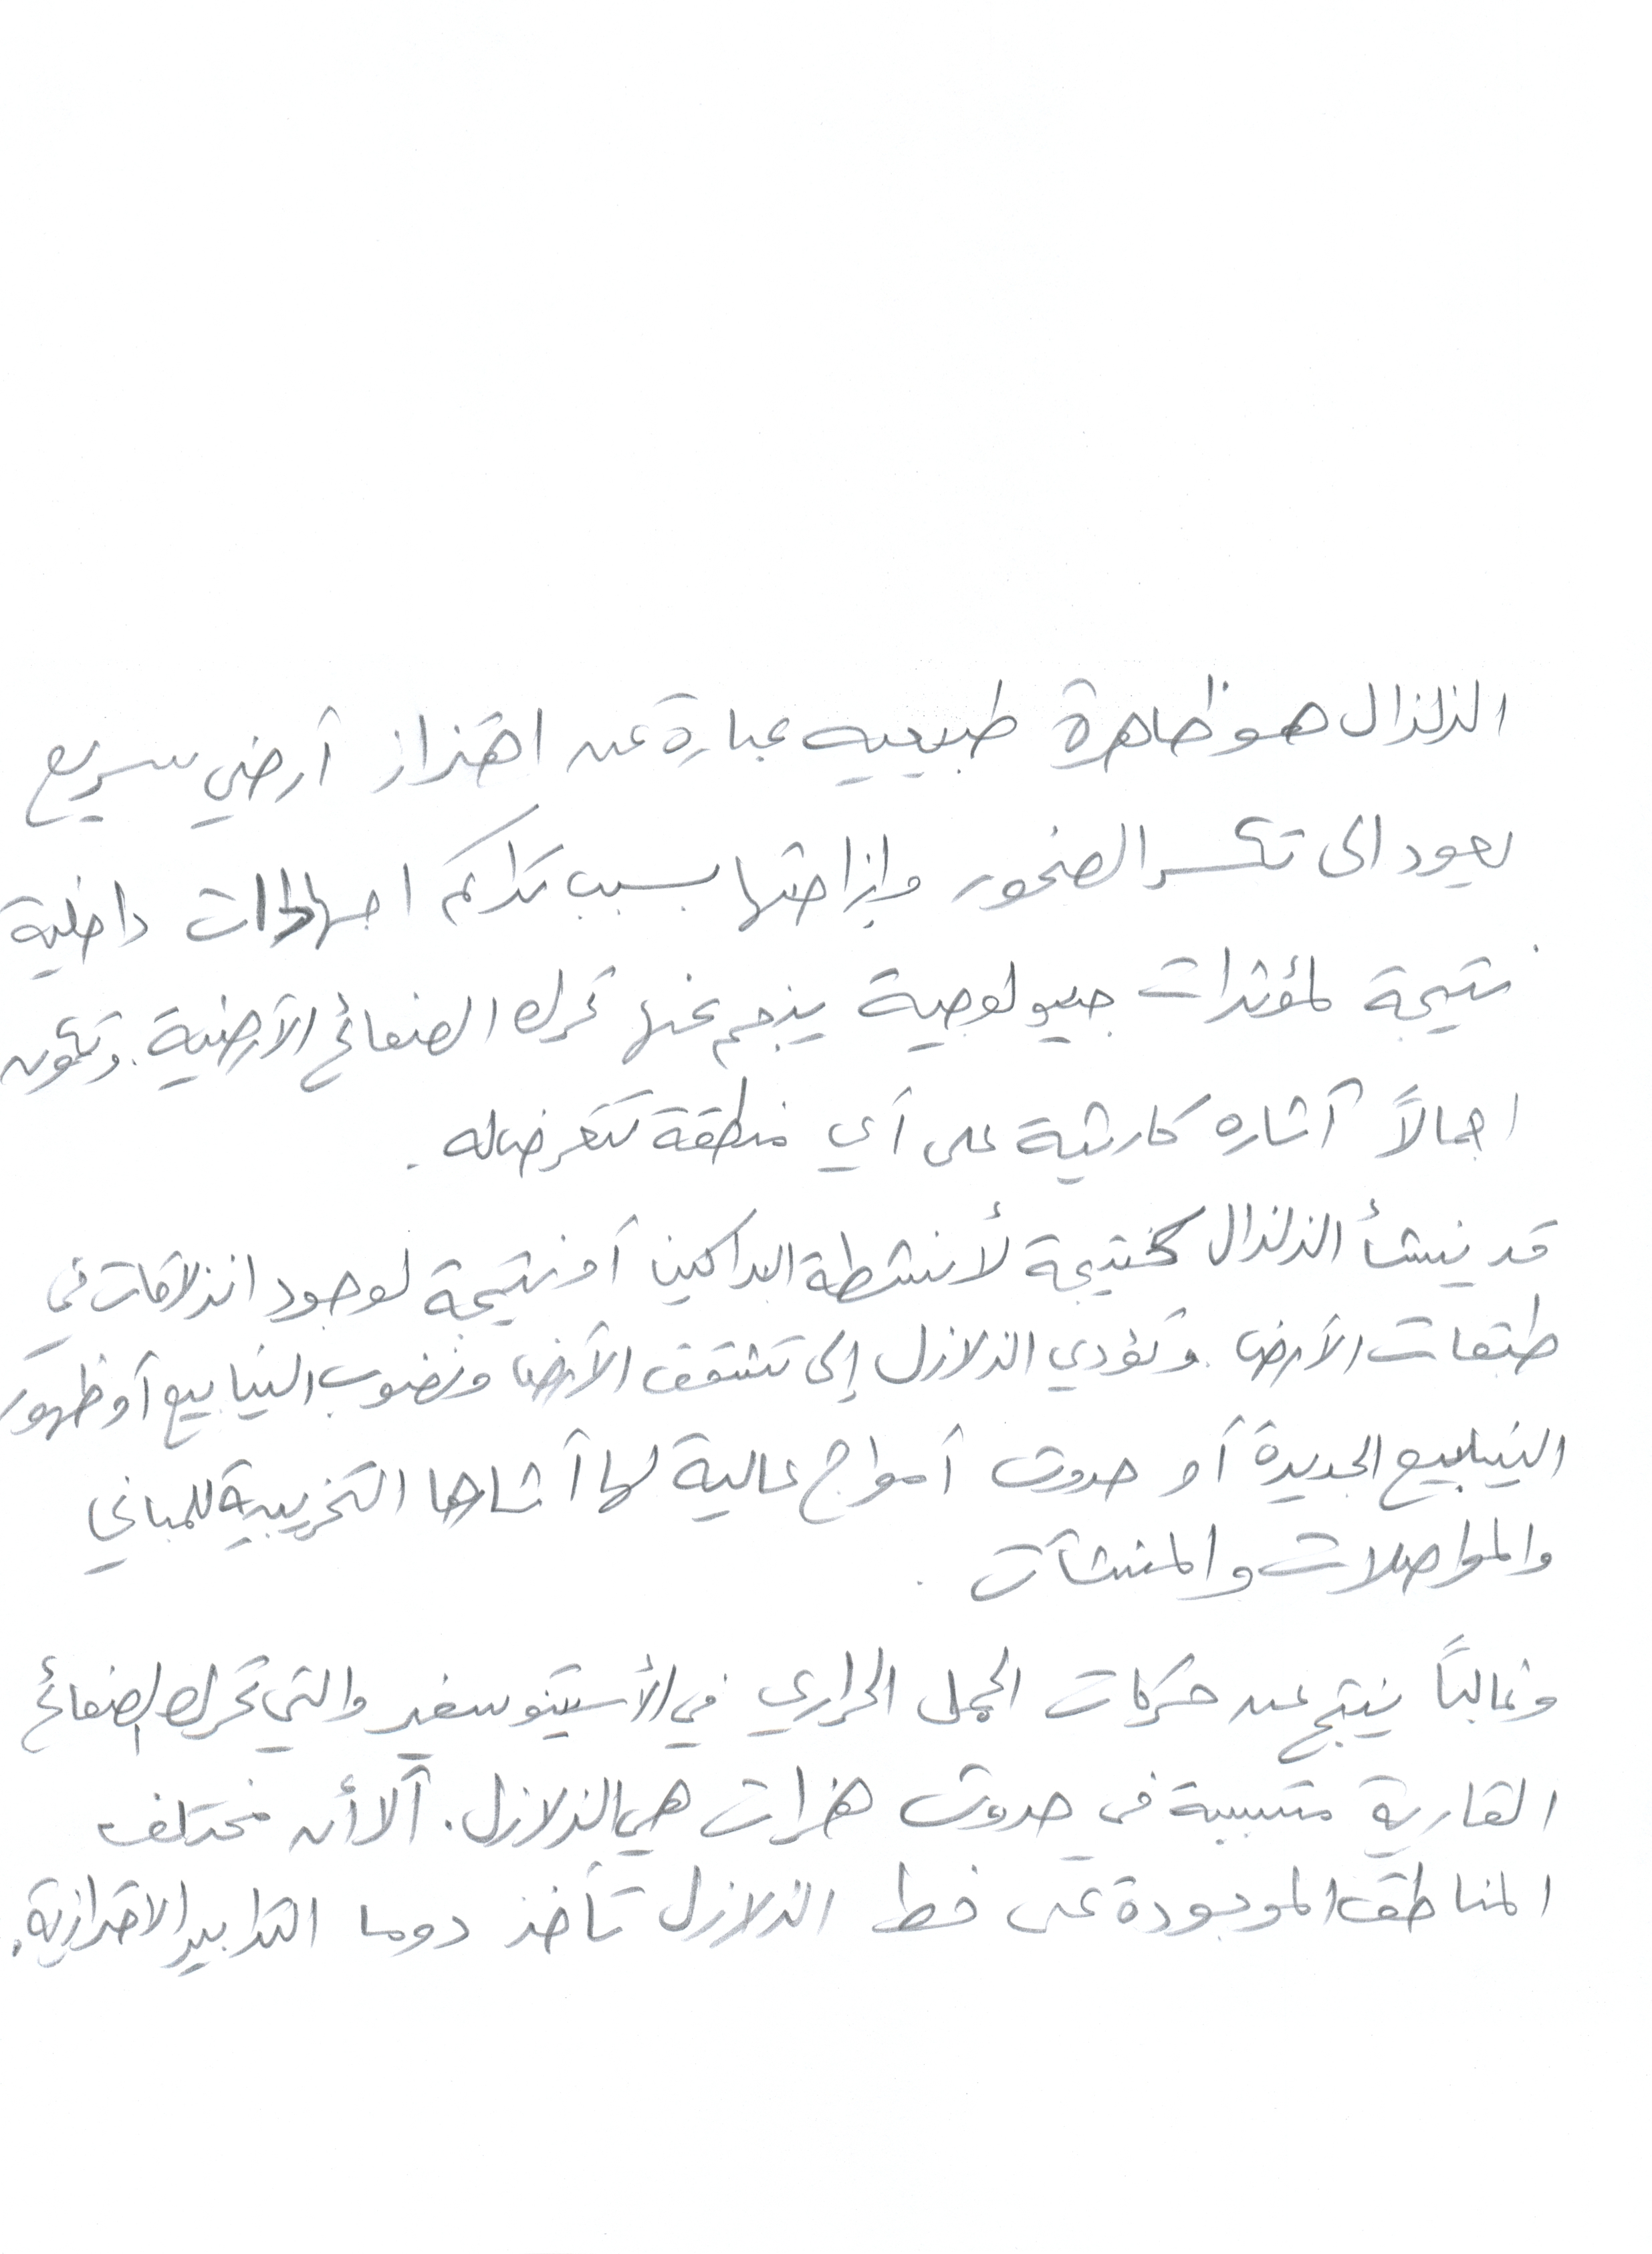 الزلزال هو ظاهرة طبيعيه عبارة عن اهتزاز أرضي سريع
يعود الى تكسر الصخور وإزاحتها بسبب تراكم اجهادات داخلية
نتيجة لمؤثرات جيولوجية ينجم عنها تحرك الصفائح الأرضية. وتكون
اجمالاً آثاره كارثية على أي منطقة تتعرض له.
قد ينشأ الزلزال كنتيجة لأنشطة البراكين أو نتيجة لوجود انزلاقات في
طبقات الأرض. وتؤدي الزلازل إلى تشقق الأرض ونضوب الينابيع أو ظهور
الينابيع الجديدة أو حدوث أمواج عالية لها آثارها التخريبية للمباني
والمواصلات والمنشآت.
وغالباً ينتج عن حركات الحمل الحراري في الأسيتنوسفير والتي تحرك الصفائح
القارية متسببة في حدوث هزات هي الزلازل. ألا أن مختلف
المناطق الموجودة على خط الزلازل تأخذ دوما التدابير الاحترازية.